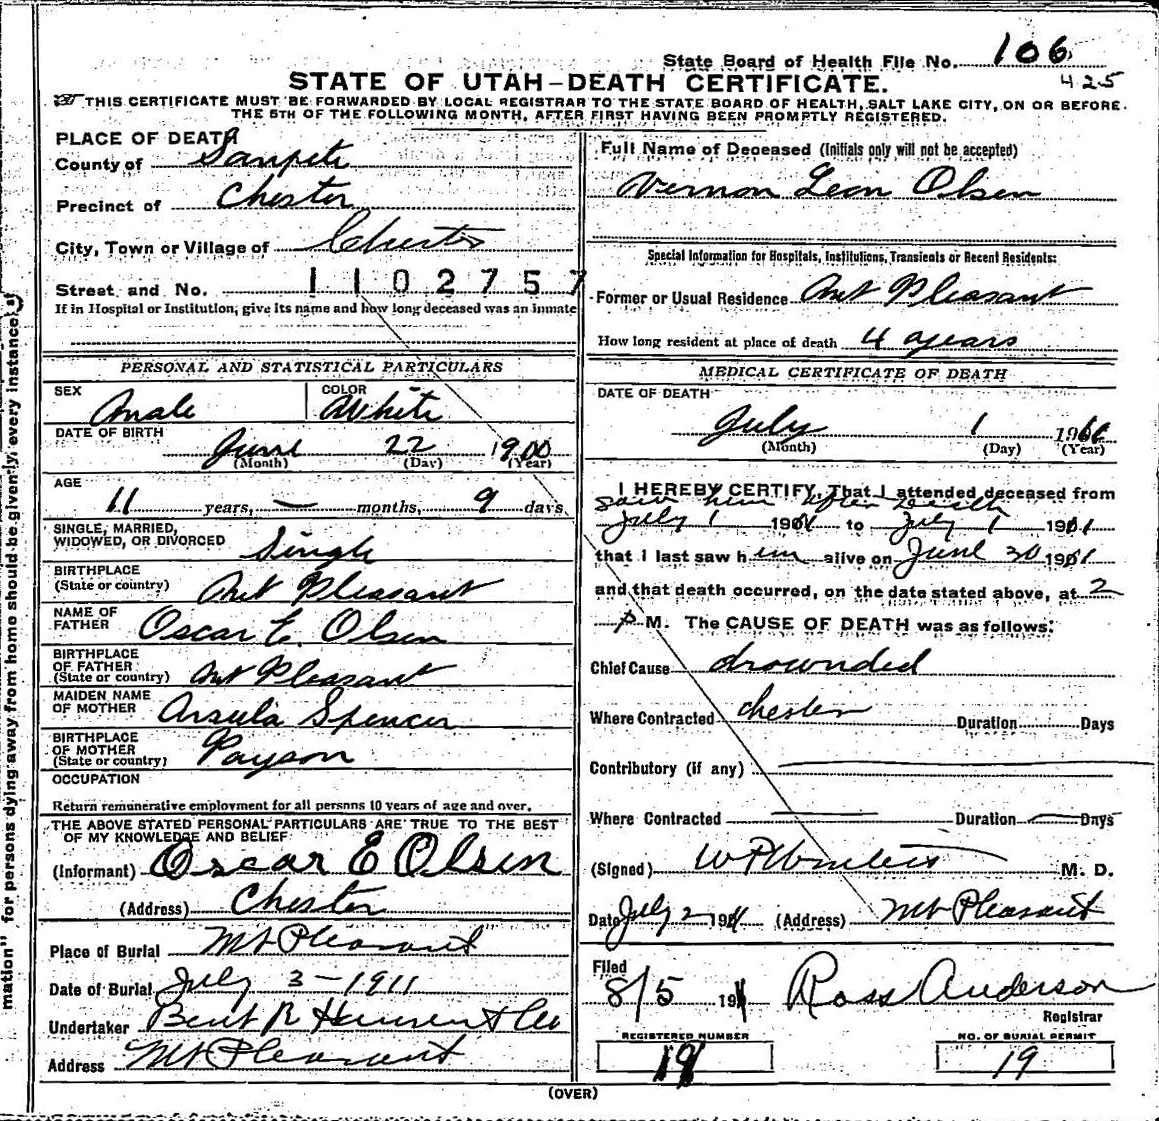 State Board of Health File No. 106
425
STATE OF UTAH—DEATH CERTIFICATE.
THIS CERTIFICATE MUST BE FORWARDED BY LOCAL REGISTRAR TO THE STATE BOARD OF HEALTH, SALT LAKE CITY, ON OR BEFORE
THE 5TH OF THE FOLLOWING MONTH, AFTER FIRST HAVING BEEN PROMPTLY REGISTERED.
PLACE OF DEATH
County of Sanpete
Precinct of Chester
City, Town or Village of Chester
Street and No. 1102757
If in Hospital or Institution, give its name and how long deceased was an inmate
PERSONAL AND STATISTICAL PARTICULARS
SEX Male COLOR White
DATE OF BIRTH June 22 1900
(Month) (Day) (Year)
AGE 11 years, — months, 9 days
SINGLE, MARRIED,
WIDOWED, OR DIVORCED Single
BIRTHPLACE
(State or country) Mt Pleasant
NAME OF
FATHER Oscar E. Olsen
BIRTHPLACE
OF FATHER
(State or country) Mt Pleasant
MAIDEN NAME
OF MOTHER Arsula Spencer
BIRTHPLACE
OF MOTHER
(State or country) Payson
OCCUPATION
Return remunerative employment for all persons 10 years of age and over.
THE ABOVE STATED PERSONAL PARTICULARS ARE TRUE TO THE BEST
OF MY KNOWLEDGE AND BELIEF
(Informant) Oscar E Olsen
(Address) Chester
Place of Burial Mt Pleasant
Date of Burial July 3—1911
Undertaker Bent R Hansen & Co
Address Mt Pleasant
Full Name of Deceased (Initials only will not be accepted)
Vernon Leon Olsen
Special Information for Hospitals, Institutions, Transients or Recent Residents:
Former or Usual Residence Mt Pleasant
How long resident at place of death 4 years
MEDICAL CERTIFICATE OF DEATH
DATE OF DEATH
July 1 1911
(Month) (Day) (Year)
I HEREBY CERTIFY, That I attended deceased from
saw him after Death
July 1 1911 to July 1 1911
that I last saw him alive on June 30 1911
and that death occurred, on the date stated above, at 2
P M. The CAUSE OF DEATH was as follows:
Chief Cause drownded
Where Contracted Chester Duration Days
Contributory (if any) —
Where Contracted — Duration — Days
(Signed) M. D.
Date July 2 1911 (Address) Mt Pleasant
Filed
8/5 1911 Ross Anderson
Registrar
REGISTERED NUMBER
19
NO. OF BURIAL PERMIT
19
(OVER)
mation" for persons dying away from home should be given in every instance.